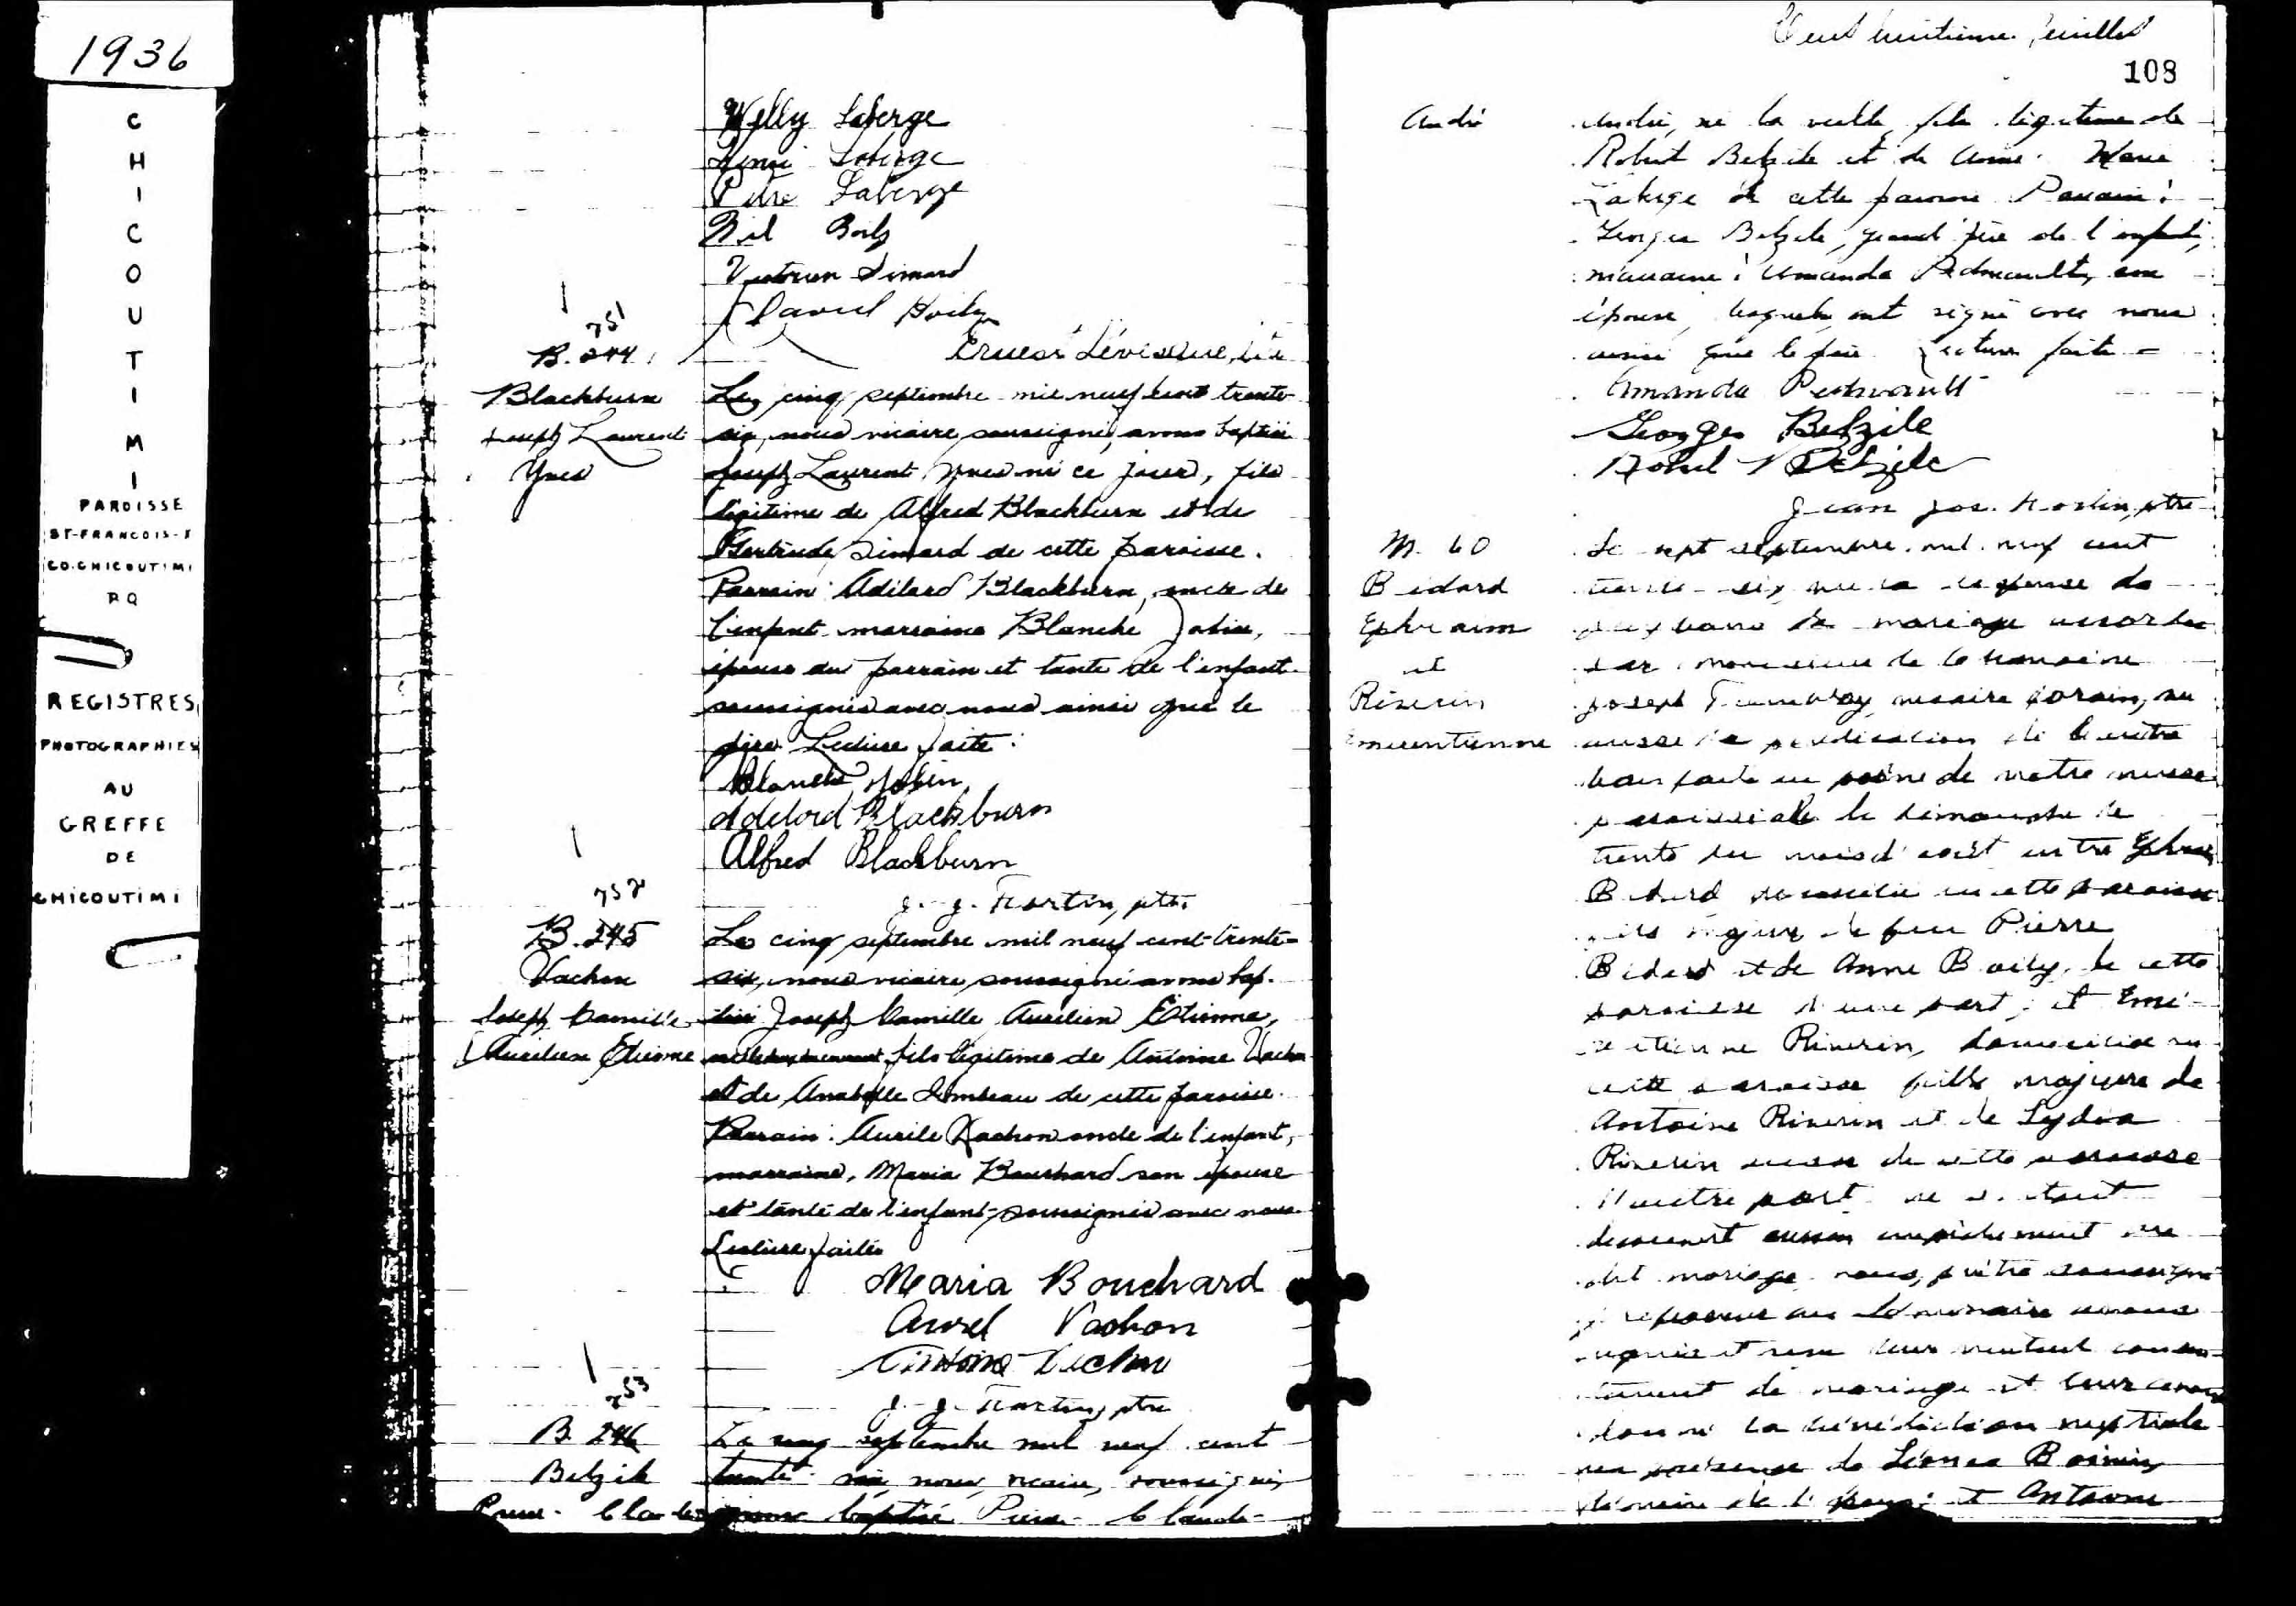 1936
CHICOUTIMI
PAROISSE
ST-FRANCOIS-X
CO. CHICOUTIMI
P Q
REGISTRES
PHOTOGRAPHIES
AU
GREFFE
DE
CHICOUTIMI
Willy Laberge
Henri Laberge
Pitre Laberge
Nil Boily
Victorien Simard
David Boily
Ernest Lévesque, v.
751
B. 244
Blackburn
Joseph Laurent
Yves
Le cinq septembre mil neuf cent trente-
six, nous vicaire soussigné, avons baptisé
Joseph Laurent Yves né ce jour, fils
légitime de Alfred Blackburn et de
Gertrude Simard de cette paroisse.
Parrain: Adélard Blackburn, oncle de
l'enfant marraine Blanche Jobin,
épouse du parrain et tante de l'enfant
soussignés avec nous ainsi que le
père. Lecture faite.
Blanche Jobin
Adelord Blackburn
Alfred Blackburn
j. j. Fortin, ptre
752
B. 245
Vachon
Joseph Camille
Aurélien Etienne
Le cinq septembre mil neuf cent trente-
six, nous vicaire soussigné avons bap-
tisé Joseph Camille Aurélien Etienne,
fils légitime de Antoine Vachon
et de Anabelle Lembeau de cette paroisse.
Parrain: Aurèle Vachon oncle de l'enfant,
marraine, Maria Bouchard son épouse
et tante de l'enfant, soussignés avec nous
Lecture faite
Maria Bouchard
Aurel Vachon
Antoine Vachon
j. j. Fortin, ptre
753
B. 246
Belzile
Pierre-Claude
Le cinq septembre mil neuf cent
trente-six, nous, vicaire, soussigné,
avons baptisé Pierre-Claude-
Cent huitième feuillet
108
André
André, né la veille, fils légitime de
Robert Belzile et de Anne-Marie
Laberge de cette paroisse. Parrain:
Georges Belzile, grand'père de l'enfant,
marraine: Amanda Pedneault, son
épouse, lesquels ont signé avec nous
ainsi que le père. Lecture faite
Amanda Pedneault
Georges Belzile
Robert Belzile
Jean Jos. Fortin, ptre
M. 60
Bédard
Ephraim
et
Riverin
Emérentienne
Le sept septembre mil neuf cent
trente-six, vu la dispense de
deux bans de mariage accordée
par monsieur le chanoine
Joseph Tremblay, vicaire forain, vu
aussi la publication de l'autre
ban faite au prône de notre messe
paroissiale le dimanche le
trente du mois d'août entre Ephraim
Bédard domicilié en cette paroisse
fils majeur de feu Pierre
Bédard et de Anne Boily, de cette
paroisse d'une part; et Emé-
rentienne Riverin, domiciliée en
cette paroisse fille majeure de
Antoine Riverin et de Lydia
Riverin aussi de cette paroisse
d'autre part ne s'étant
découvert aucun empêchement au
dit mariage nous, prêtre soussigné
professeur au Séminaire avons
requis et reçu leur mutuel consen-
tement de mariage et leur avons
donné la bénédiction nuptiale
en présence de Léonce Boivin,
témoin de l'époux; et Antoine